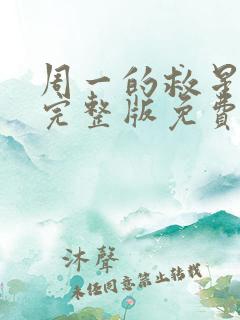 周一的救星
完整版免費
沐聲
未经同意禁止转载